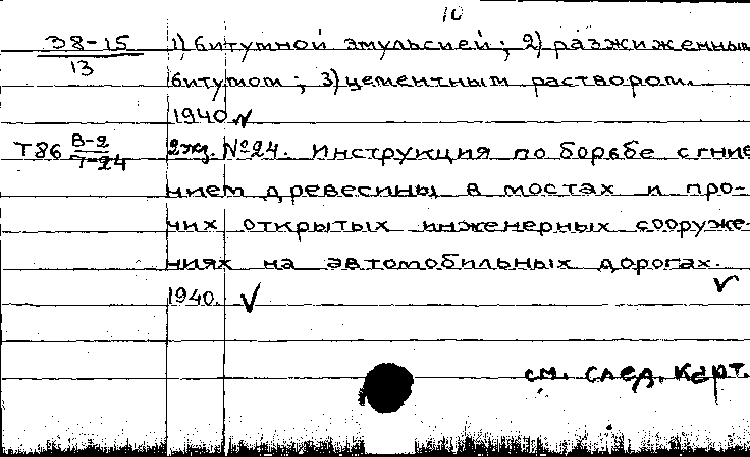 10
38-15 1) битумной эмульсией; 2) разжиженным
13 битумом; 3) цементным раствором.
1940
Т86 В-2 2 экз. №24. Инструкция по борьбе с гние
Т-24 нием древесины в мостах и про-
чих открытых инженерных сооруже-
ниях на автомобильных дорогах.
1940.
см. след. карт.